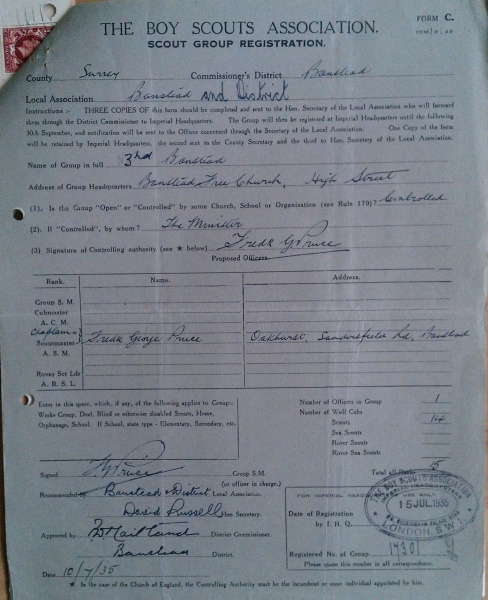 FORM C.
THE BOY SCOUTS ASSOCIATION.
SCOUT GROUP REGISTRATION.
County Surrey Commissioner's District Banstead
Local Association Banstead and District
Instructions :- THREE COPIES OF this form should be completed and sent to the Hon. Secretary of the Local Association who will forward
them through the District Commissioner to Imperial Headquarters. The Group will then be registered at Imperial Headquarters until the following
30th September, and notification will be sent to the Officers concerned through the Secretary of the Local Association. One Copy of the form
will be retained by Imperial Headquarters, the second sent to the County Secretary and the third to the Hon. Secretary of the Local Association.
Name of Group in full 3rd Banstead
Address of Group Headquarters Banstead Free Church, High Street
(1). Is the Group "Open" or "Controlled" by some Church, School or Organisation (see Rule 179)? Controlled
(2). If "Controlled", by whom? The Minister
(3) Signature of Controlling authority (see ★ below) Fredk G Pruce
Proposed Officers.
Rank. Name. Address.
Group S. M.
Cubmaster
A. C. M.
Chaplain &
Scoutmaster Fredk George Pruce Oakhurst, Sandersfield Rd, Banstead
A. S. M.
Rover Sct Ldr
A. R. S. L.
Enter in this space, which, if any, of the following applies to Group:-
Works Group, Deaf, Blind or otherwise disabled Scouts, Home,
Orphanage, School. If School, state type - Elementary, Secondary, etc.
Number of Officers in Group 1
Number of Wolf Cubs
Scouts 14
Sea Scouts
Rover Scouts
Rover Sea Scouts
Total all Ranks 15
Signed F G Pruce Group S.M.
(or officer in charge.)
Recommended Banstead & District Local Association.
David Russell Hon Secretary.
Approved by District Commissioner.
Banstead District.
Date 10/7/35
FOR IMPERIAL HEADQUARTERS USE ONLY
THE BOY SCOUTS ASSOCIATION
15 JUL 1935
LONDON, S.W.1
Date of Registration
by I.H.Q.
Registered No. of Group 14301
Please quote this number in all correspondence.
★ In the case of the Church of England, the Controlling Authority must be the incumbent or some individual appointed by him.